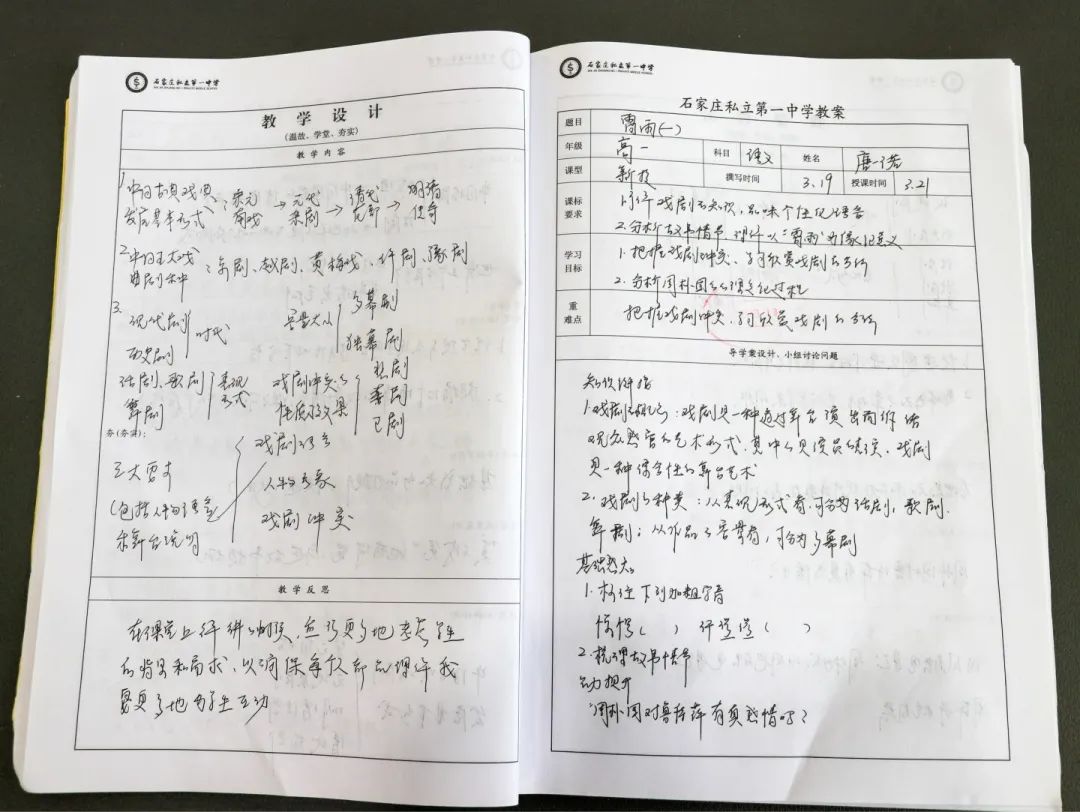 石家庄私立第一中学
教学设计
(温故、学堂、夯实)
教学内容
1.中国古典戏曲
发展基本形式
宋元南戏→元代杂剧→→明清传奇
2.中国五大戏
曲剧种:京剧、越剧、黄梅戏、评剧、豫剧
3.
现代剧
历史剧
时代
容量大小
多幕剧
独幕剧
话剧、歌剧
舞剧
表现形式
戏剧冲突的
性质及效果
悲剧
喜剧
正剧
夯(夯实):
戏剧语言
三大要素
人物形象
(包括人物语言
和舞台说明
戏剧冲突
教学反思
在课堂上评讲的时候,应该更多地考虑学生
的背景和需求,以确保每次都
更多地与学生互动
石家庄私立第一中学
石家庄私立第一中学教案
题目 雷雨(一)
年级 高一 科目 语文 姓名 唐一诺
课型 新授 撰写时间 3.19 授课时间 3.21
课标要求
1.了解戏剧的知识,品味个性化语言
2.分析故事情节,理解以“雷雨”为
学习目标
1.把握戏剧冲突,学习欣赏戏剧的方法
2.分析周朴园的过程
重难点
把握戏剧冲突,学习欣赏戏剧的方法
导学案设计、小组讨论问题
知识链接
1.戏剧的概念:戏剧是一种通过舞台演出而作给
观众欣赏的艺术形式,其中的是演员的表演,戏剧
是一种综合性的舞台艺术
2.戏剧的种类:从表现形式看,可分为话剧,歌剧,
舞剧;从作品的容量看,可分为多幕剧
1.标注下列加粗字音
( ) ( )
2.梳理故事情节
“周朴园对鲁侍萍有真感情吗?